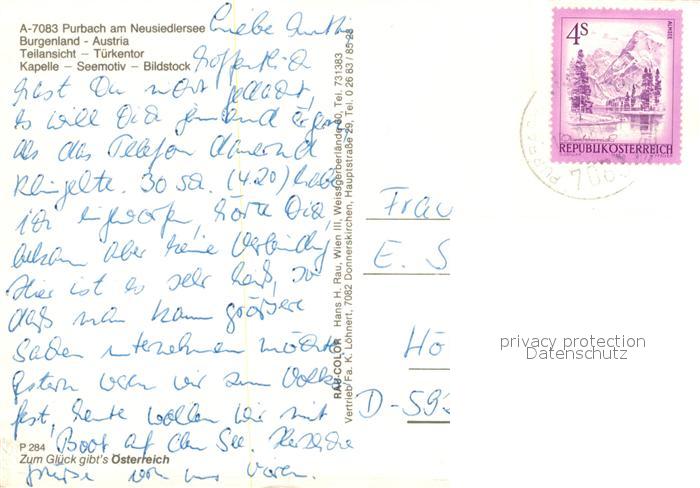 A-7083 Purbach am Neusiedlersee
Burgenland - Austria
Teilansicht – Türkentor
Kapelle – Seemotiv – Bildstock
Liebe
Hoffentlich
hast Du nicht gedacht,
es will Dich jemand ärgern
als das Telefon dauernd
klingelte. 30 Sch. (4.20) habe
ich eingeworfen, hörte Dich,
bekam aber keine Verbindung
Hier ist es sehr heiß, so
daß man kaum größere
Sachen unternehmen möchte
Gestern waren wir zum Volks-
fest, heute wollen wir mit
Boot auf den See. Herzliche
Grüße von uns
P 284
Zum Glück gibt's Österreich
RAU-COLOR Hans H. Rau, Wien III, Weissgerberlände 40, Tel. 731383
Vertrieb/Fa. K. Löhnert, 7082 Donnerskirchen, Hauptstraße 29, Tel. 0 26 83 / 85 28
4S
ALMSEE
REPUBLIK ÖSTERREICH
Frau
E. S
Hö
D-59
privacy protection
Datenschutz